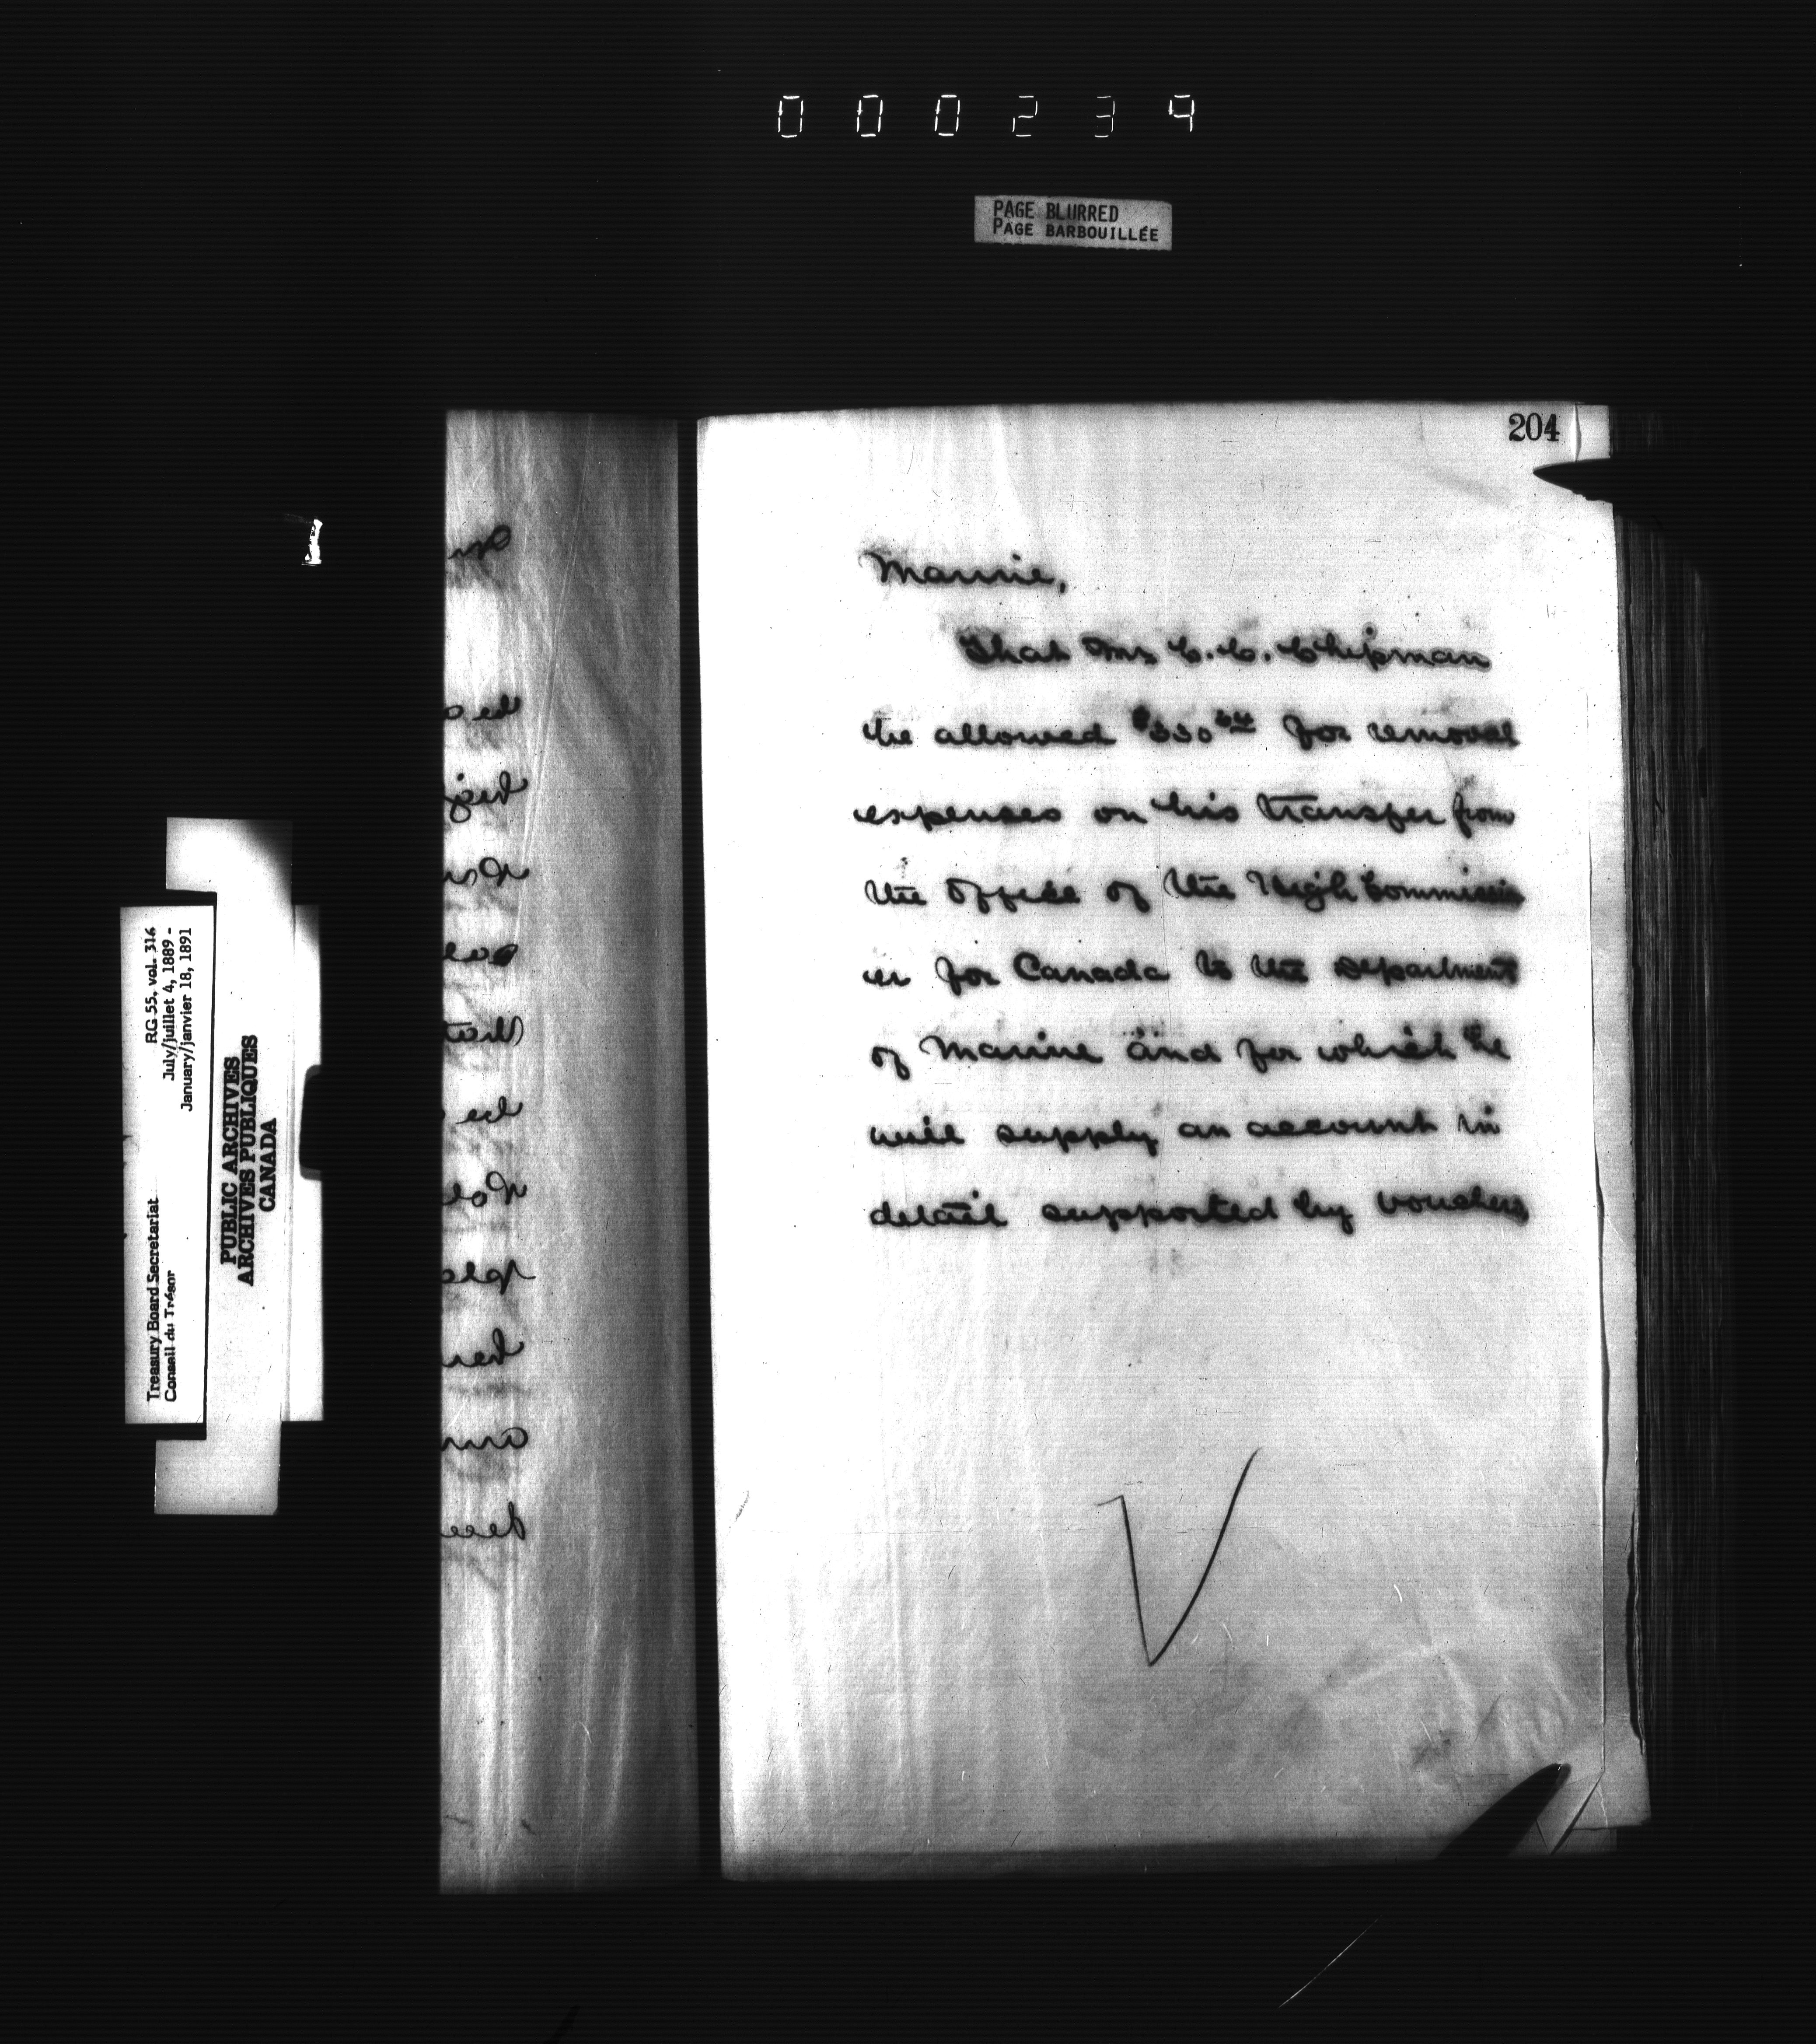 000234
PAGE BLURRED
PAGE BARBOUILLÉE
204
Marine,
That Mr C. C. Chipman
be allowed for removal
expenses on his transfer from
the office of the High Commission
er for Canada to the Department
of Marine and for which he
will supply an account in
detail supported by vouchers
Treasury Board Secretariat RG 55, vol. 316
Conseil du Trésor July/juillet 4, 1889 -
January/janvier 18, 1891
PUBLIC ARCHIVES
ARCHIVES PUBLIQUES
CANADA